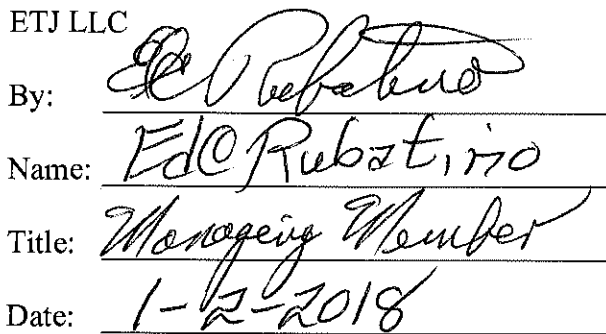 ETJ LLC
By: Ed C Rubatino
Name: Ed C Rubatino
Title: Managing Member
Date: 1-2-2018